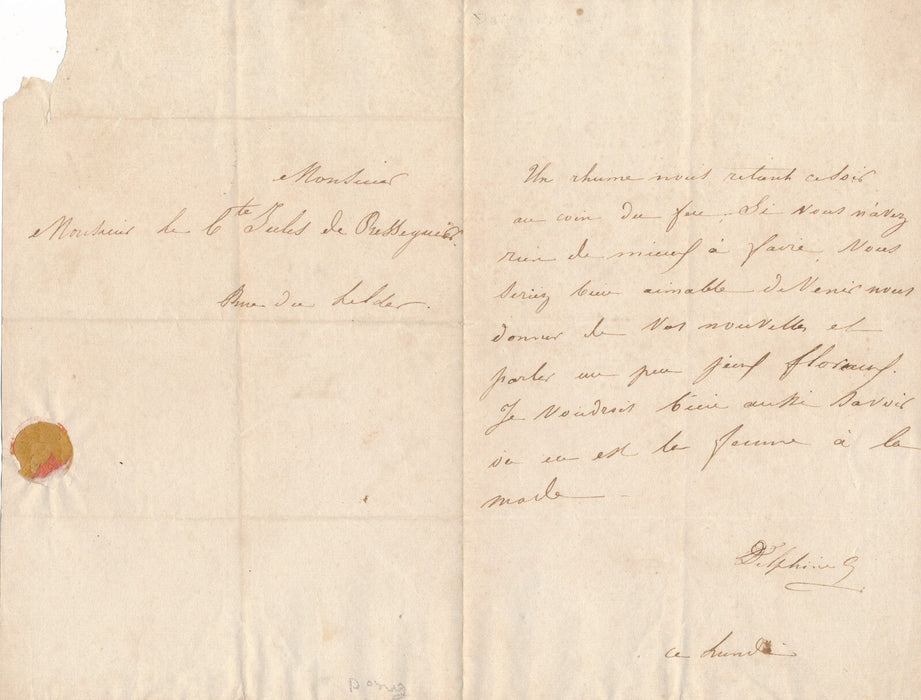 Monsieur
Monsieur le Cte Jules de Resseguier.
Rue du helder.
Un rhume nous retient ce soir
au coin du feu. Si vous n'avez
rien de mieux à faire, vous
seriez bien aimable de venir nous
donner de vos nouvelles et
parler un peu jeux floraux.
Je voudrois bien aussi savoir
où en est la femme à la
mode
Delphine G
ce lundi